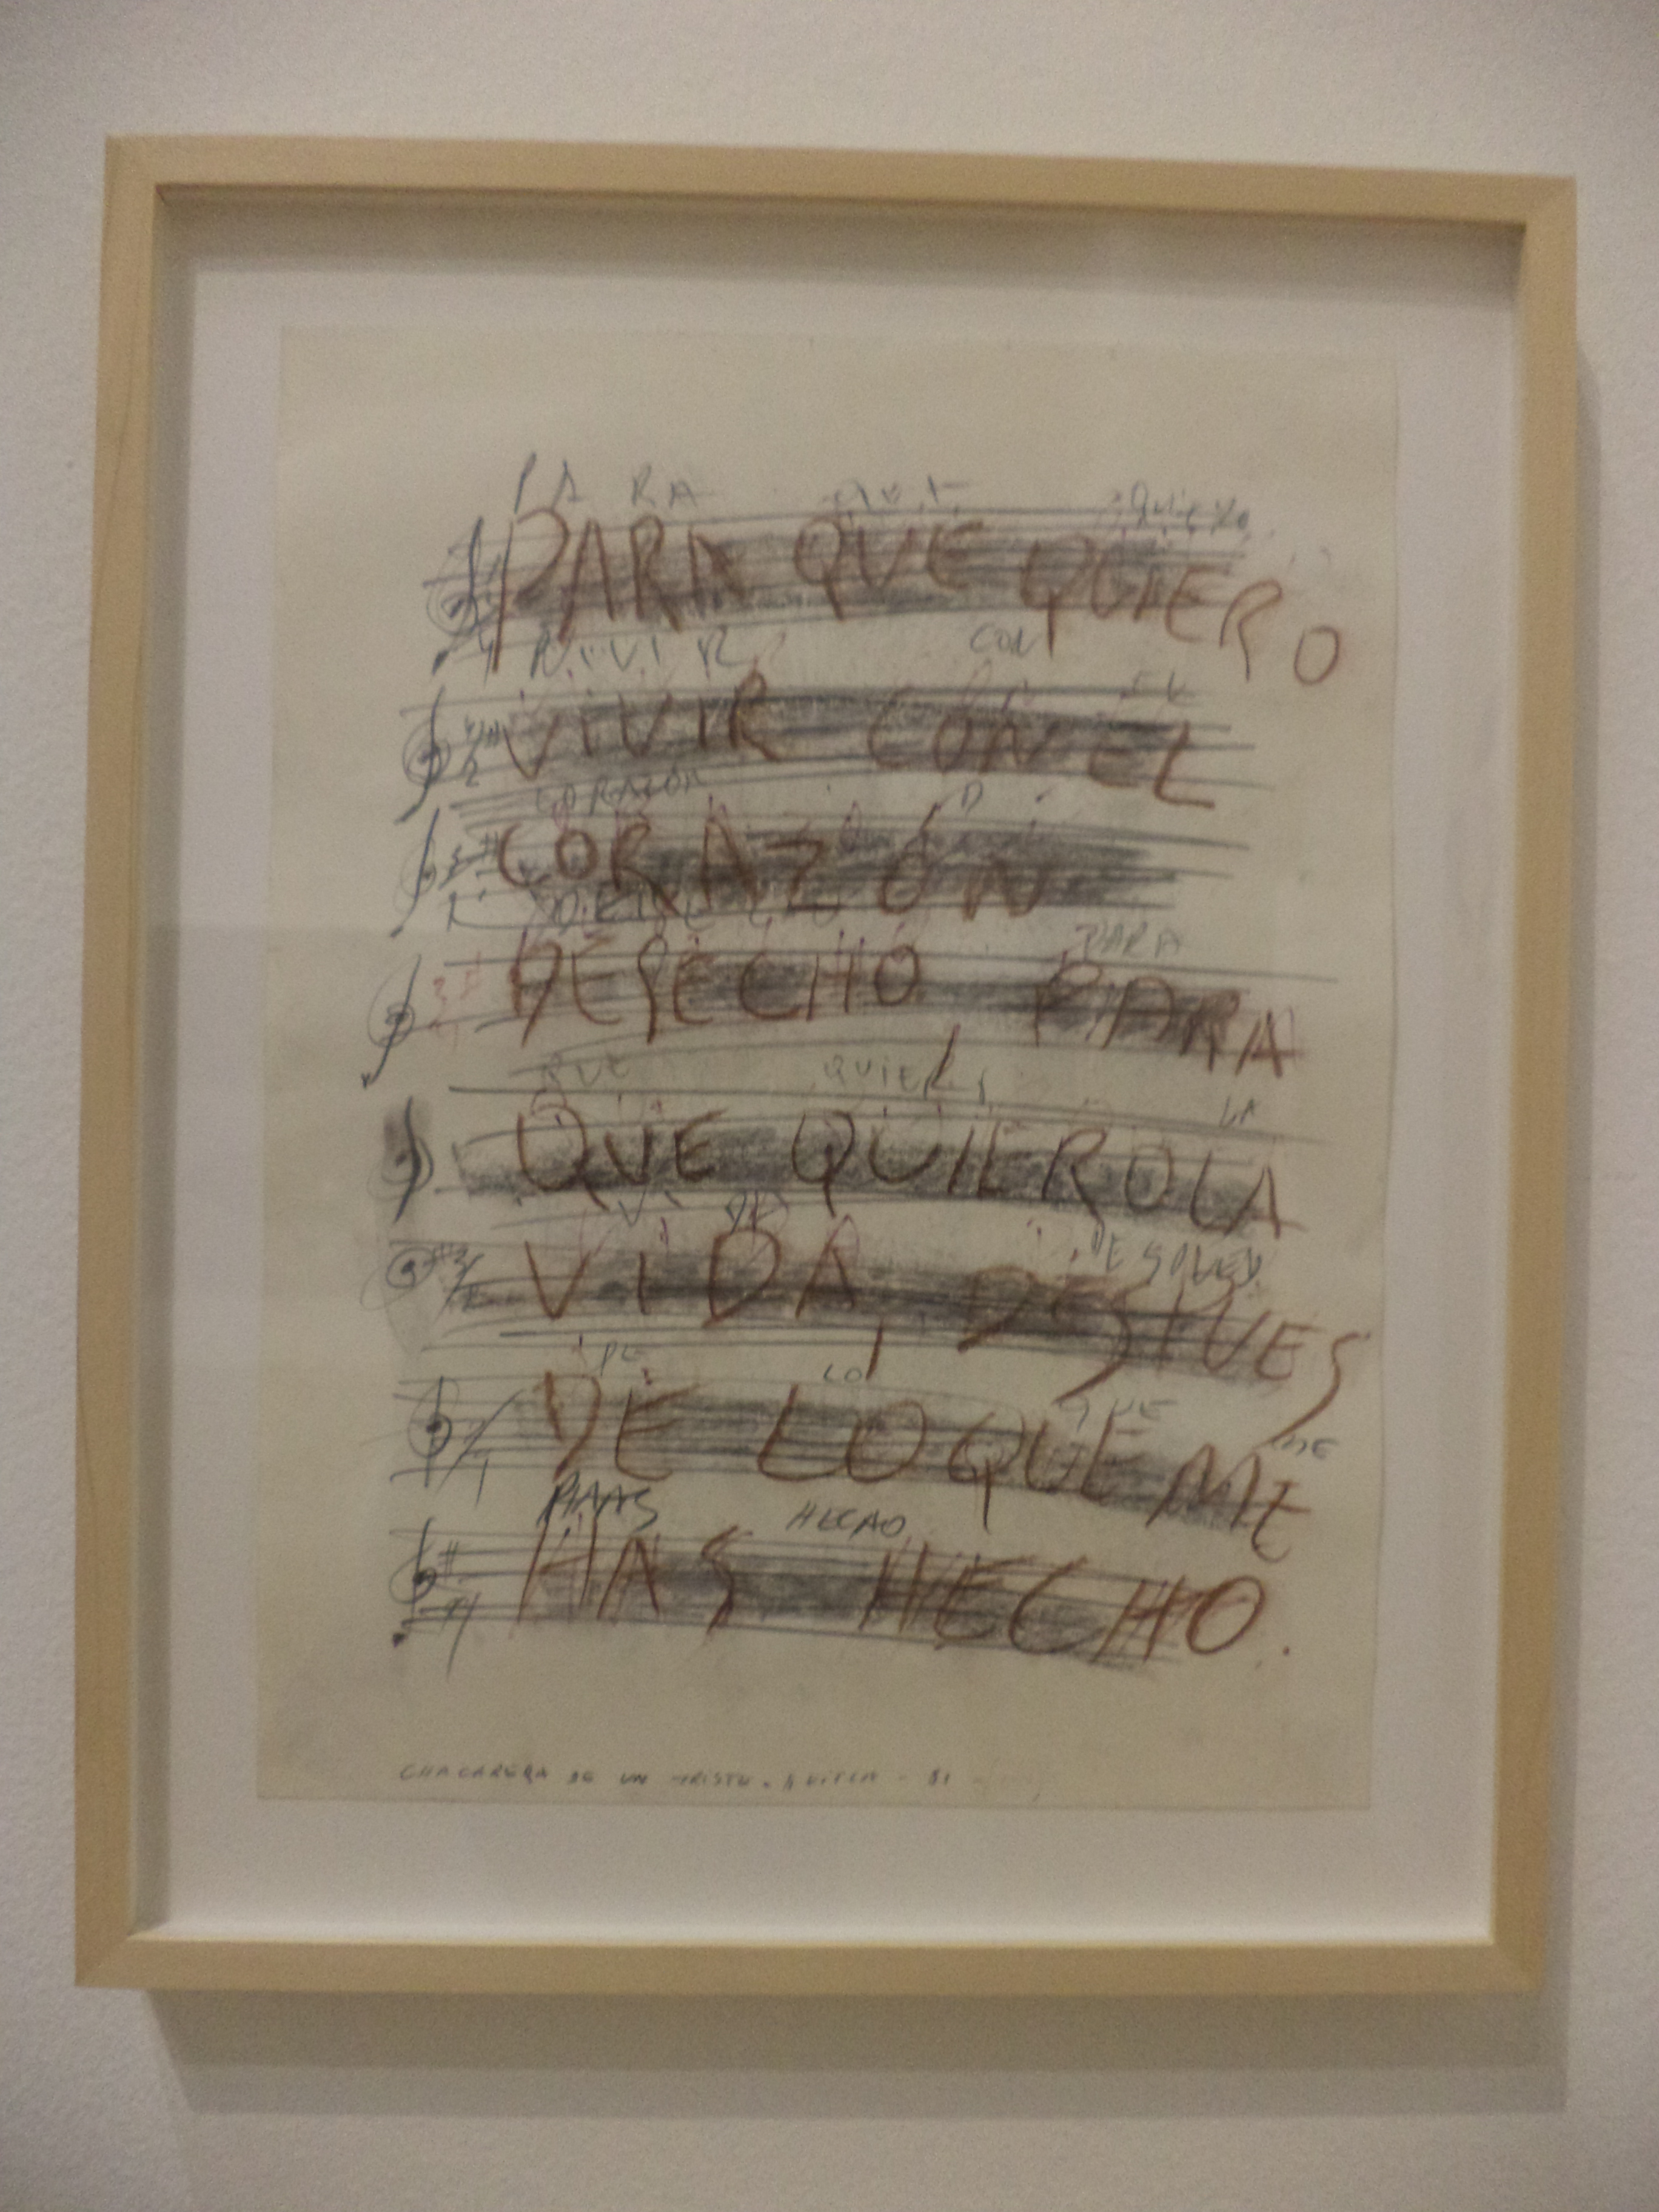 PA RA QUE QUIERO
PARA QUE QUIERO
VIVIR CON EL
VIVIR CON EL
CORAZON
CORAZÓN
PARA
DESECHO PARA
QUE QUIERO LA
QUE QUIERO LA
VI DA DESPUES
VIDA, DESPUES
DE LO QUE ME
DE LO QUE ME
HAS HECHO
HAS HECHO.
CHACARERA DE UN TRISTE